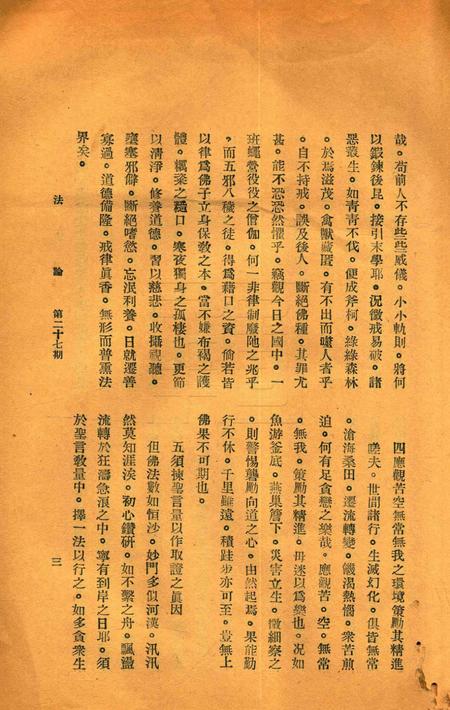 哉。苟前人不存些些威儀。小小軌則。將何
以鍛鍊後昆。接引末學耶。況微戒易破。諸
惡叢生。如青青不伐。便成斧柯。綠綠森林
。於焉滋茂。禽獸藏匿。有不出而噬人者乎
。自不持戒。誤及後人。斷絕佛種。其罪尤
甚。能不恐恐然懼乎。竊觀今日之國中。一
班蠅營役役之僧伽。何一非律制廢弛之兆乎
。而五邪八穢之徒。得爲藉口之資。倘若皆
以律爲佛子立身保敎之本。當不嫌布褐之護
體。糲粢之糊口。寒夜獨身之孤棲也。更節
以淸淨。修養道德。習以慈悲。收攝視聽。
壅塞邪僻。斷絕嗜慾。忘泯利養。日就遷善
寡過。道德備隆。戒律眞香。無形而普熏法
界矣。
四應觀苦空無常無我之環境策勵其精進
嗟夫。世間諸行。生滅幻化。俱皆無常
。滄海桑田。遷流轉變。饑渴熱惱。衆苦煎
迫。何有足貪戀之樂哉。應觀苦。空。無常
。無我。策勵其精進。毋迷以爲樂也。况如
魚游釜底。燕巢簷下。災害立生。微細察之
。則警惕礱勵向道之心。由然起焉。果能勤
行不休。千里雖遠。積跬步亦可至。豈無上
佛果不可期也。
五須揀聖言量以作取證之眞因
但佛法數如恒沙。妙門多似河漢。汛汛
然莫知涯涘。初心鑽硏。如不繫之舟。飄盪
流轉於狂濤急浪之中。寧有到岸之日耶。須
於聖言敎量中。擇一法以行之。如多貪衆生
法 論 第二十七期
三